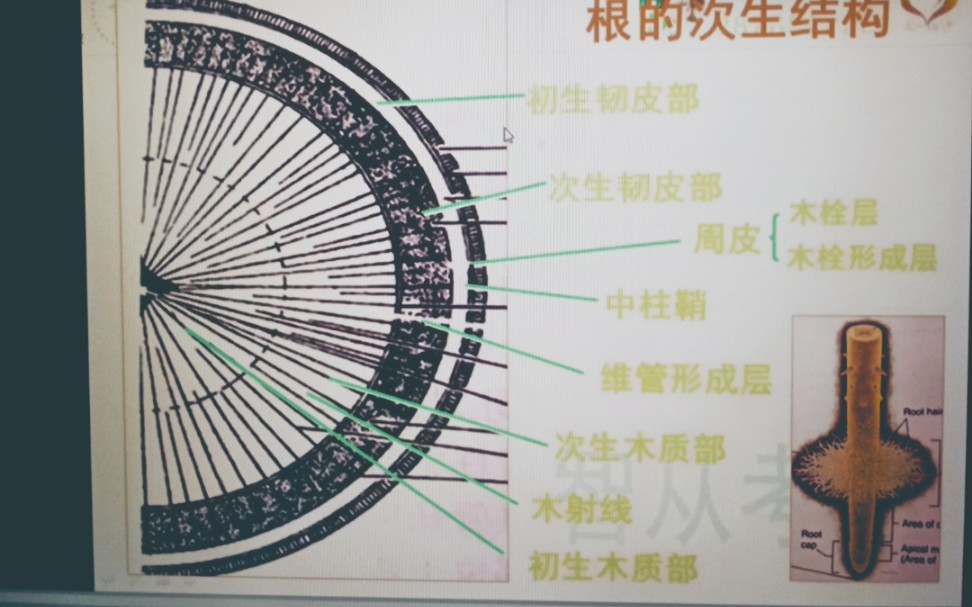 根的次生结构
初生韧皮部
次生韧皮部
周皮
木栓层
木栓形成层
中柱鞘
维管形成层
次生木质部
木射线
初生木质部
Root
cap
Root hair
Area of
Apical m
(Area of